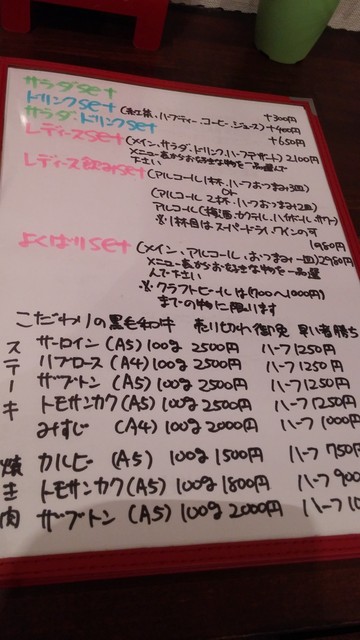 サラダset +300円
ドリンクset (紅茶、ハーブティー、コーヒー、ジュース) +400円
サラダ、ドリンクset +650円
レディースset (メイン、サラダ、ドリンク、ハーフデザート) 2100円
メニュー表からお好きな物を一品選んで
下さい
レディース飲みset (アルコール1杯、ハーフおつまみ3皿)
or
(アルコール 2杯、ハーフおつまみ2皿)
アルコール(梅酒、カクテル、ハイボール、サワー)
※1杯目はスーパードライ、ワインの可
1980円
よくばりset (メイン、アルコール、おつまみ一皿) 2980円
メニュー表からお好きな物を一品選
んで下さい
※クラフトビールは(700〜1000円)
までの物に限ります
こだわりの黒毛和牛 売り切れ御免 早い者勝ち
ステーキ
サーロイン (A5) 100g 2500円 ハーフ1250円
リブロース (A4) 100g 2500円 ハーフ1250円
ザブトン (A5) 100g 2500円 ハーフ1250円
トモサンカク (A5) 100g 2500円 ハーフ1250円
みすじ (A4) 100g 2000円 ハーフ1000円
焼き肉
カルビー (A5) 100g 1500円 ハーフ 750円
トモサンカク (A5) 100g 1800円 ハーフ 900
ザブトン (A5) 100g 2000円 ハーフ 10